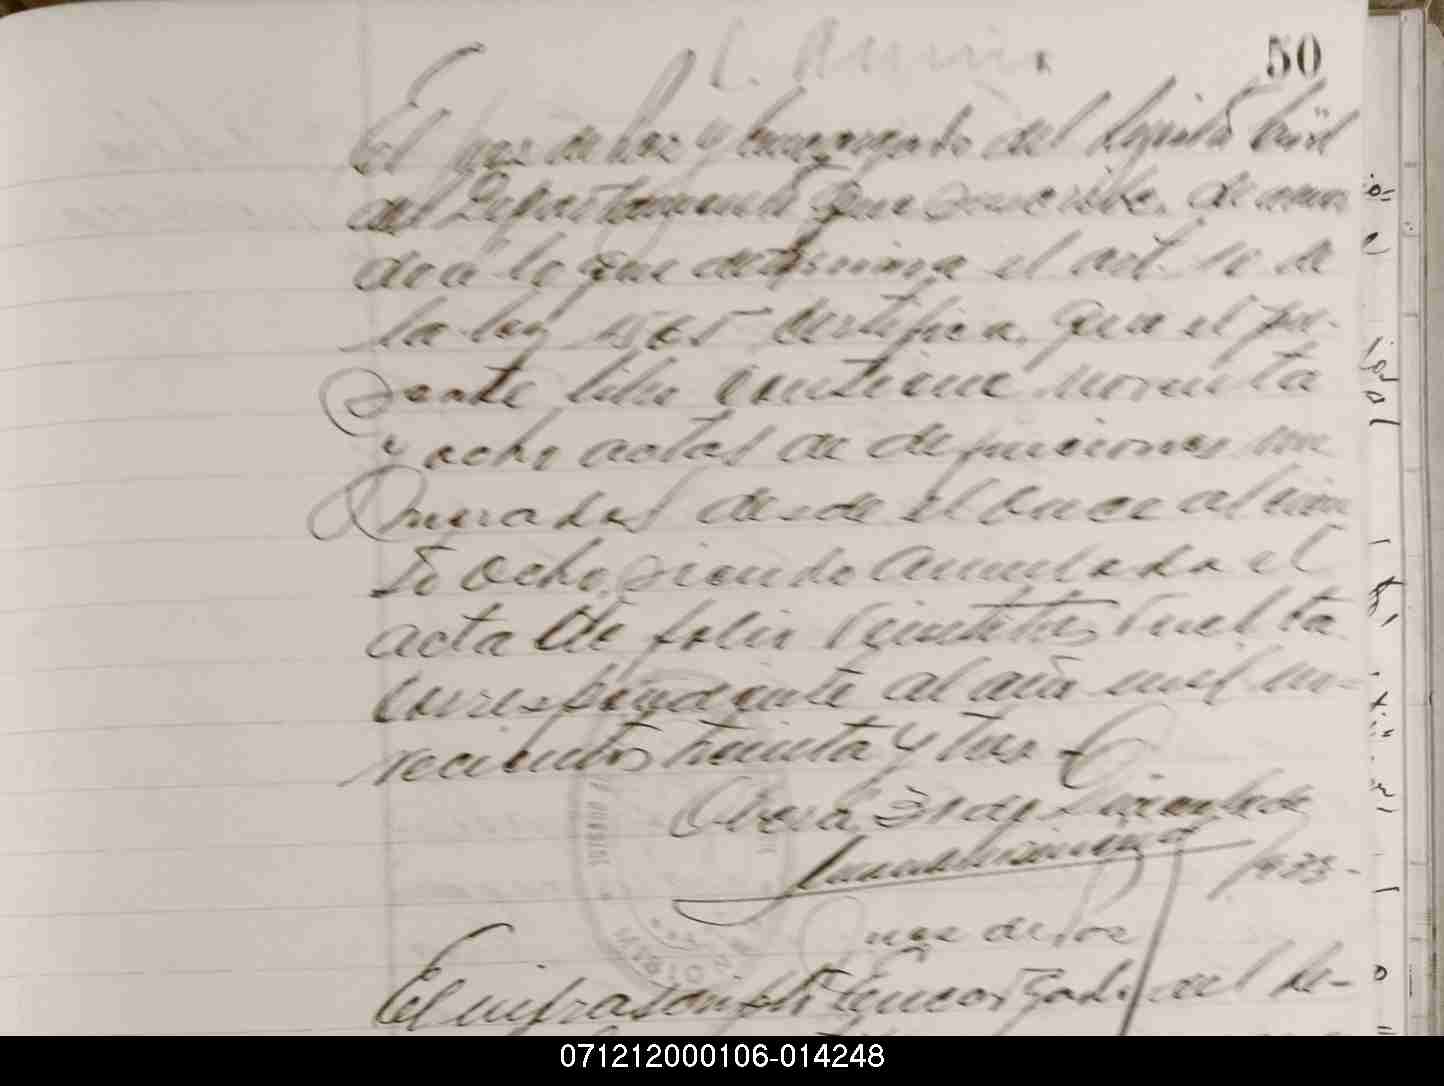 50
El Juez de Paz y Encargado del Registro Civil
del Departamento que suscribe, de acuer
do a lo que determina el art. 10 de
la ley 1565 certifica, que el pre-
sente libro contiene noventa
y ocho actas de defunciones nu
meradas desde el once al ciento
ocho, siendo anulada el
acta de folio veintitres vuelta
correspondiente al año mil no-
vecientos treinta y tres
31 de Diciembre de
1933-
Juez de Paz
El infrascripto Encargado del Re-
071212000106-014248